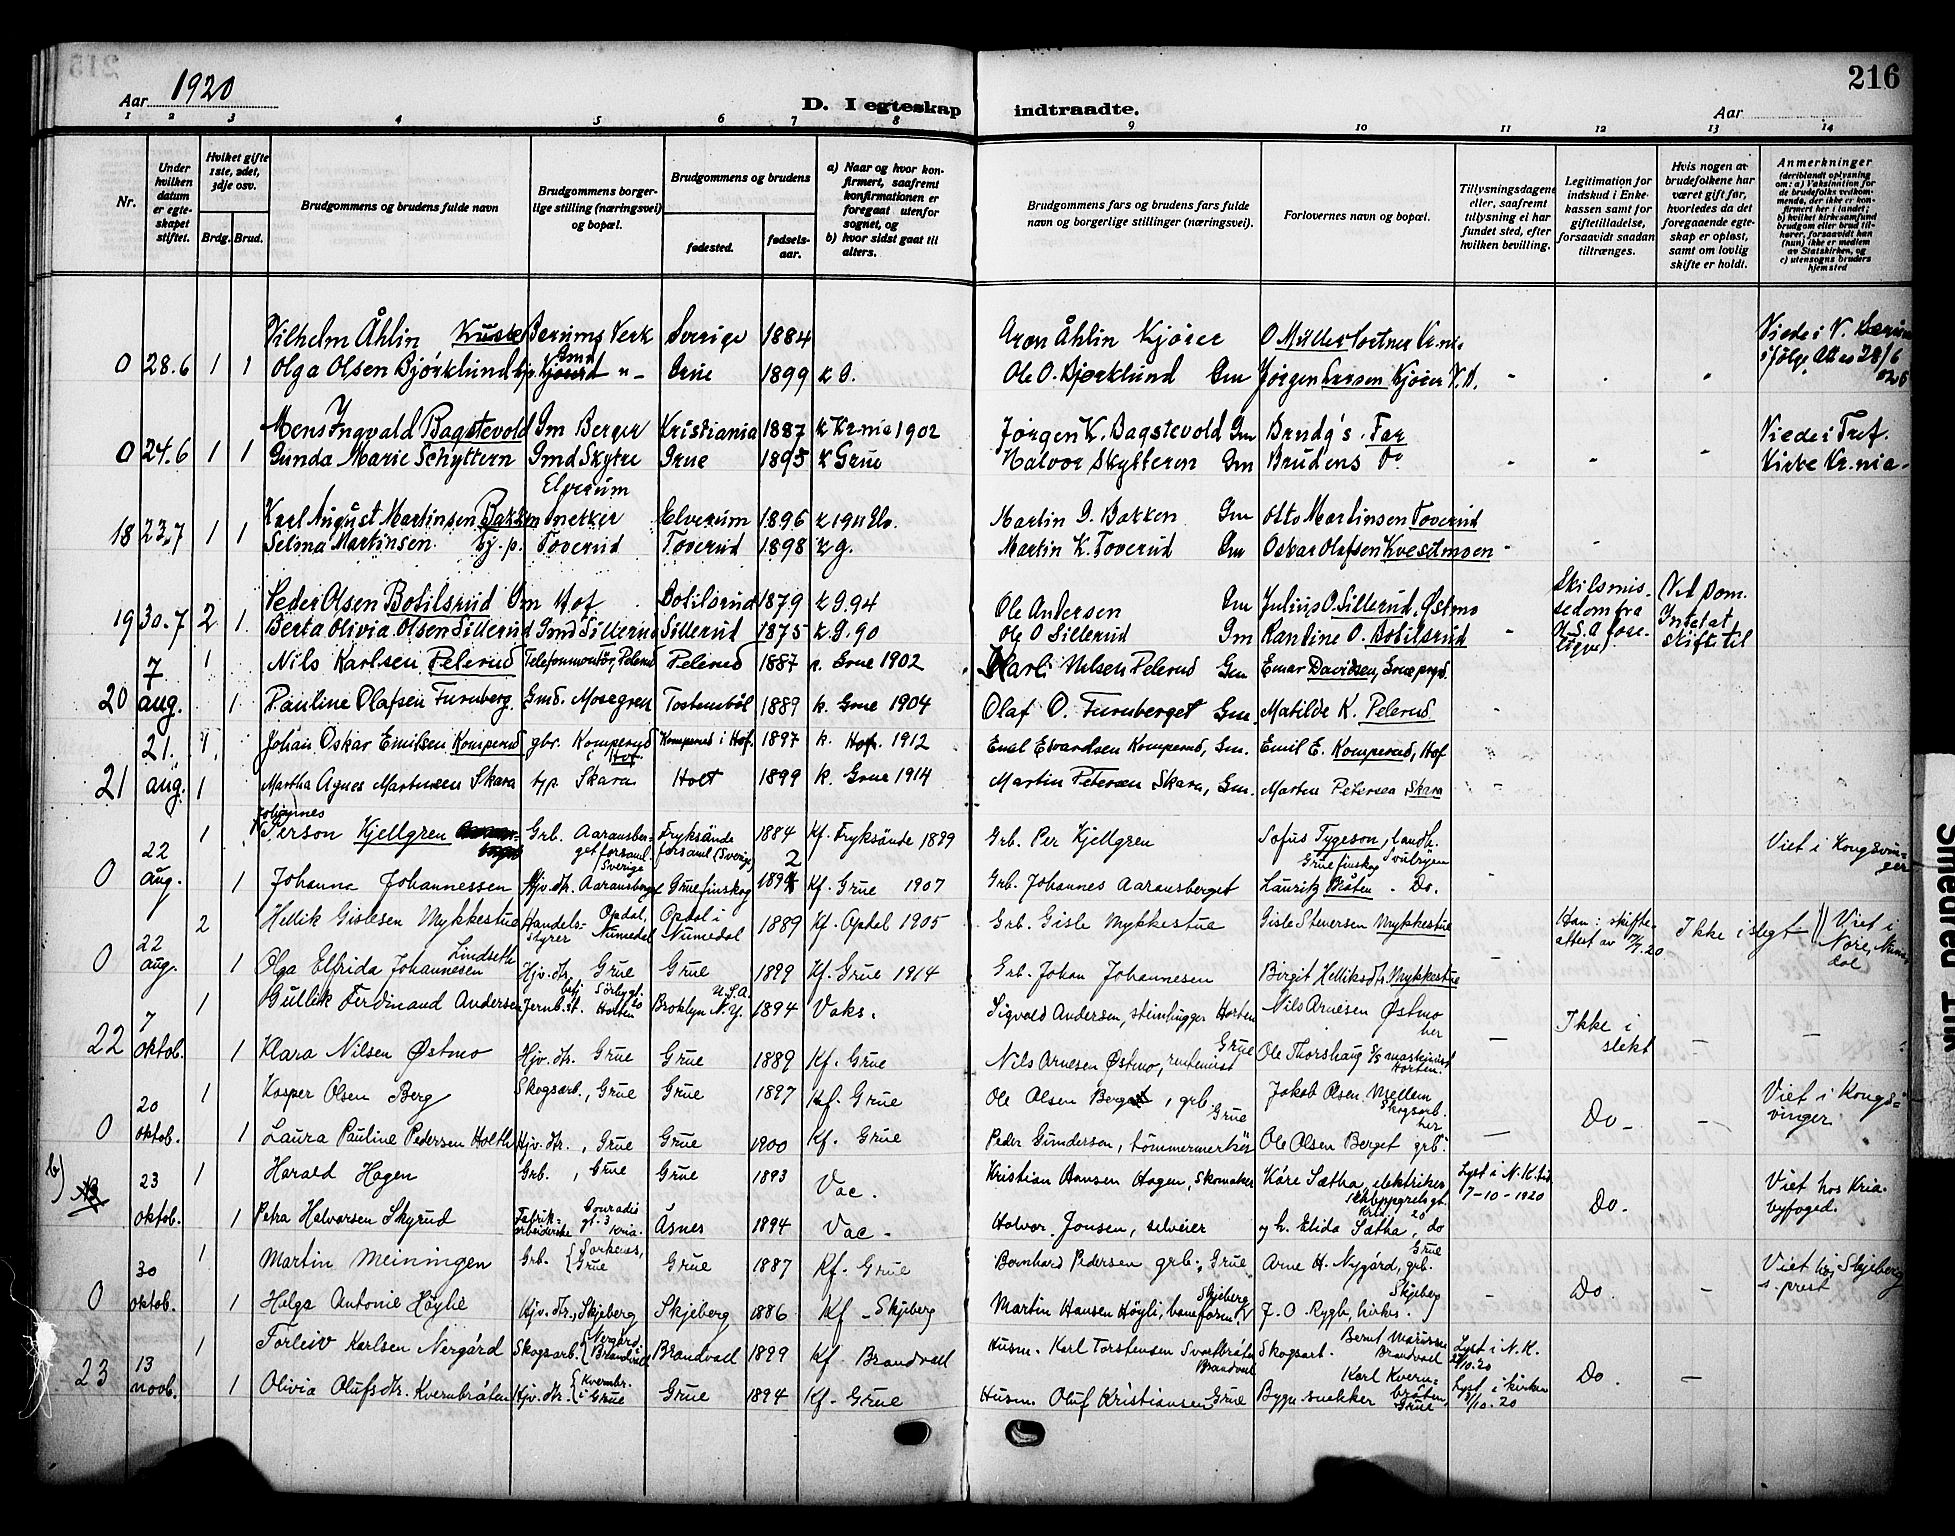 216
Aar 1920
D. I egteskap indtraadte.
Aar
1 2 3 4 5 6 7 8 9 10 11 12 13 14
Nr.
Under hvilken datum er egteskapet stiftet.
Hvilket gifte 1ste, 2det, 3dje osv.
Brdg. Brud.
Brudgommens og brudens fulde navn
Brudgommens borgerlige stilling (næringsvei) og bopæl.
Brudgommens og brudens
fødested.
fødselsaar.
a) Naar og hvor konfirmert, saafremt konfirmationen er foregaat utenfor sognet, og
b) hvor sidst gaat til alters.
Brudgommens fars og brudens fars fulde navn og borgerlige stillinger (næringsvei).
Forlovernes navn og bopæl.
Tillysningsdagene eller, saafremt tillysning ei har fundet sted, efter hvilken bevilling.
Legitimation for indskud i Enkekassen samt for giftetilladelse, forsaavidt saadan tiltrænges.
Hvis nogen av brudefolkene har været gift før, hvorledes da det foregaaende egteskap er opløst, samt om lovlig skifte er holdt.
Anmerkninger
(deriblandt oplysning om: a) Vaksination for de brudefolks vedkommende, der ikke er konfirmert her i landet; b) hvilket kirkesamfund brudgom eller brud tilhører, forsaavidt han (hun) ikke er medlem av Statskirken, og c) utensogns bruders hjemsted
Vilhelm Åhlin Bærums Verk Sverige 1884 Aron Åhlin Kjører O Müller
0 28.6 1 1 Olga Olsen Bjørklund Grue 1899 k G. Ole O. Bjørklund Gm Jørgen Larsen Kjører V.B. Viede i V. Bærum
Mens Ingvald Bagstevold Gm Berger Kristiania 1887 k Kr.nia 1902 Jørgen K. Bagstevold Gm Brudg's Far Viede i Tref.
0 24.6 1 1 Gunda Marie Schyttern Gmd Skytre Grue 1895 k Grue Halvor Skytteren Gm Brudens Do Kirke Kr.nia
Elverum
Karl August Martinsen Bakken Elverum 1896 k 1911 Elv. Martin G. Bakken Gm Otto Martinsen Toverud
18 23.7 1 1 Selma Martinsen hj. p. Toverud Toverud 1898 k g. Martin K. Toverud Gm Oskar Olafsen Kvesetmoen
Peder Olsen Botilsrud Gm Hof Botilsrud 1879 k G. 94 Ole Andersen Gm Julius O. Sillerud, Østmo Skilsmissedom fra
19 30.7 2 1 Berta Olivia Olsen Sillerud Gmd Sillerud Sillerud 1875 k. G. 90 Ole O Sillerud Gm Kantine O. Botilsrud Ved Dom. Intet at skifte til
Nils Karlsen Pelerud Telefonmontør, Pelerud Pelerud 1887 k. Grue 1902 Karl Nilsen Pelerud Gm Einar Davidsen, Grue prgd.
20 7 aug. 1 1 Pauline Olafsen Furuberg. Gmd. Mosegren Tostensbøl 1889 k. Grue 1904 Olaf O. Furuberget Gm. Matilde K. Pelerud
Johan Oskar Emilsen Komperud gbr. Komperud Hof Komperud i Hof. 1897 k. Hof. 1912 Emil Edvardsen Komperud, Gm. Emil E. Komperud, Hof
21 21. aug. 1 1 Martha Agnes Martinsen Skara hjp. Skara Holt 1899 k. Grue 1914 Martin Petersen Skara, Gm. Martin Petersen Skara
Johannes
Person Kjellgren Grb. Aaransberget forsaml. Sverige Fryksände forsaml (Sverige) 1884 Kf. Fryksände 1899 Grb. Per Kjellgren Sofus Tygeson, landh. Gruefinskog Svulryen Viet i Kongsvinger
0 22 aug. 1 1 Johanna Johannessen Hjv. dtr. Aaransberget Gruefinskog 1892 Kf. Grue 1907 Grb. Johannes Aaransberget Lauritz Bråten - Do.
Hellik Gislesen Mykkestue Handelsstyrer Opdal, Numedal Opdal i Numedal 1889 Kf. Opdal 1905 Grb. Gisle Mykkestue Gisle Stenersen Mykkestue Han: skifteattest av 7/7.20 Ikke i slegt Viet i Nore, Numedal
0 22 aug. 2 1 Olga Elfrida Johannesen Lindseth Hjv. dtr. Grue Grue 1899 Kf. Grue 1914 Grb. Johan Johannesen Birgit Helliksdtr. Mykkestue
Gullik Ferdinand Andersen Jernb.st. Horten Broklyn N.Y. U.S.A. 1894 Vaks. Sigvald Andersen, steinhugger Horten Nils Arnesen Østmo her
22 7 oktob. 1 1 Klara Nilsen Østmo Hjv. dtr. Grue Grue 1889 Kf. Grue Nils Arnesen Østmo, rentenist Grue Ole Thorshaug maskinist Horten. Ikke i slekt
Kasper Olsen Berg Skogsarb., Grue Grue 1897 Kf. Grue Ole Olsen Berget, grb. Grue Jakob Olsen Mellem Skogsarb. her Viet i Kongsvinger
0 20 oktob. 1 1 Laura Pauline Pedersen Holth Hjv. dtr., Grue Grue 1900 Kf. Grue Peder Gunderson, tømmermerker Ole Olsen Berget grb. Do
b) Harald Hagen Grb., Grue Grue 1893 Vac. Kristian Hansen Hagen, Skomaker Kåre Sætha, elektriker Kria. Lyst i N.K. 7-10-1920 Viet hos Kria. byfoged.
23 oktob. 1 1 Petra Halvorsen Skyrud Fabrikarbeiderske Conradis gt. 3 Kria. Åsnes 1894 Vac. Halvor Jonsen, selveier og h. Elida Sætha, do Do.
Martin Meiningen Grb. Sorknes, Grue Grue 1887 Kf. Grue Bernhard Pedersen grb., Grue Arne H. Nygård, grb. Grue Viet hos Skjeberg s. prest
0 30 oktob. 1 1 Helga Antonie Høylie Hjv. dtr., Skjeberg Skjeberg 1886 Kf - Skjeberg Martin Hansen Høyli, baneform. Skjeberg J. O. Rygh, kirkes. Skjeberg Do.
Torleiv Karlsen Nergård Skogsarb. Nergård, Brandvall Brandvall 1899 Kf. Brandvall Husm. Karl Torstensen Svartbråten Brandvall Skogsarb. Bernt Brandvall Lyst i N.K. 24/10.20
23 13 novb. 1 1 Olivia Olufsdtr. Kvernbråten Hjv. dtr. Kvernbr. i Grue Grue 1894 Kf. Grue Husm. Oluf Kristiansen Grue Bygn. snekker Karl Kvernbråten, Grue Lyst i kirken 31/10.20 Do.